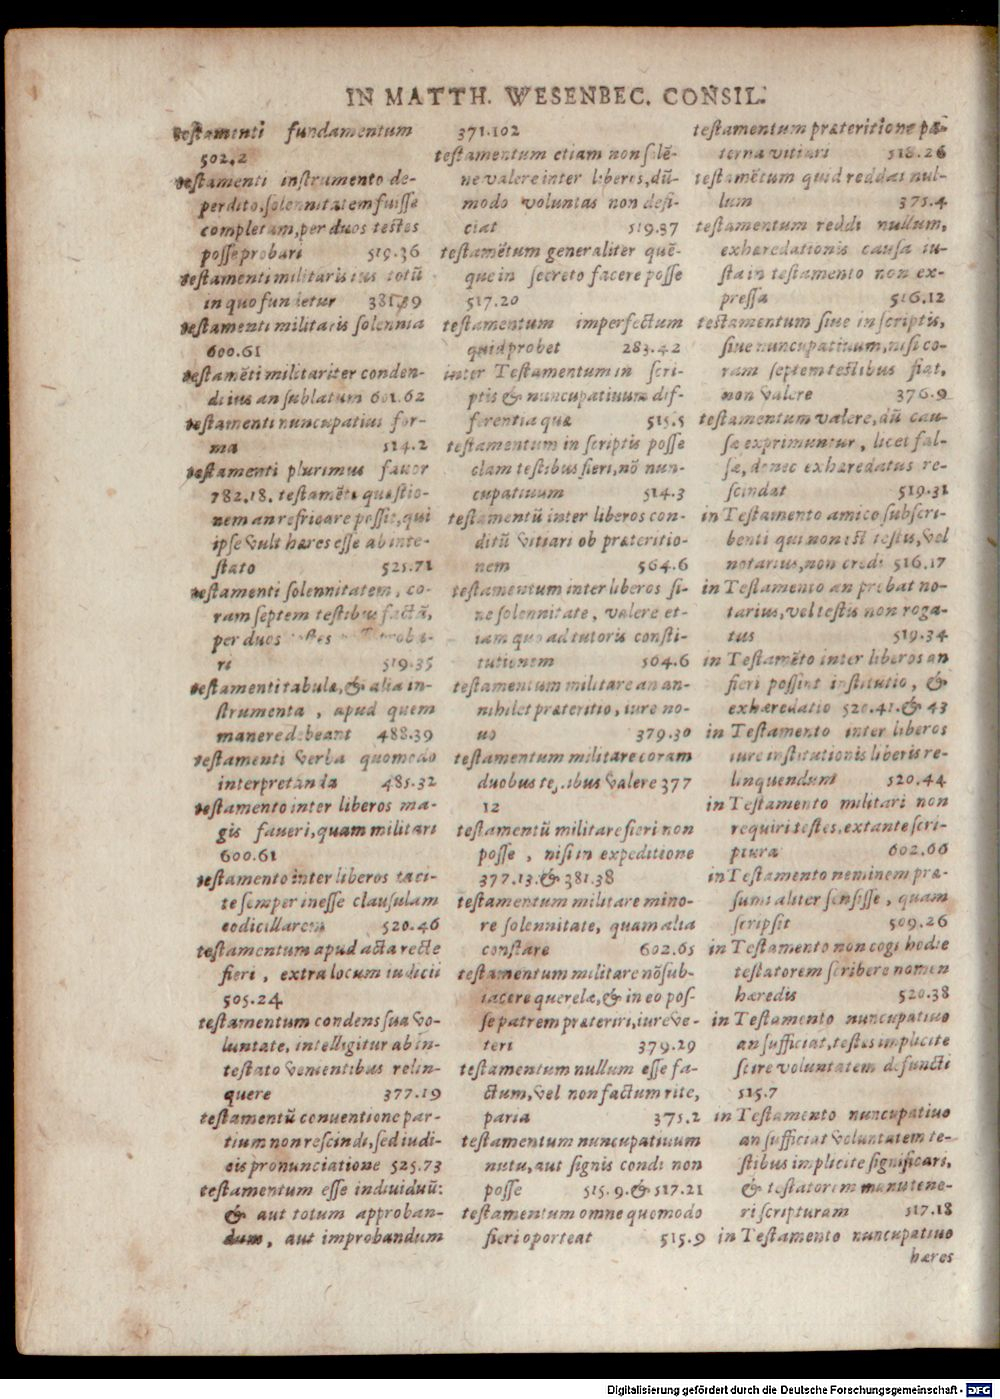 IN MATTH. WESENBEC. CONSIL.
testamenti fundamentum
502.2
testamenti instrumento de-
perdito, solennitatem fuisse
completam, per duos testes
posse probari 519.36
testamenti militaris ius totū
in quo fundetur 381.39
testamenti militaris solennia
600.61
testamēti militariter conden-
di ius an sublatum 601.62
testamenti nuncupatiui for-
ma 514.2
testamenti plurimus fauor
782.18. testamēti quæstio-
nem an refricare possit, qui
ipse vult hæres esse ab inte-
stato 525.71
testamenti solennitatem, co-
ram septem testibus factā,
per duos testes proba-
ri 519.35
testamenti tabulæ, & alia in-
strumenta, apud quem
manere debeant 488.39
testamenti verba quomodo
interpretanda 485.32
testamento inter liberos ma-
gis faueri, quam militari
600.61
testamento inter liberos taci-
te semper inesse clausulam
codicillarem 520.46
testamentum apud acta recte
fieri, extra locum iudicii
505.24
testamentum condens sua vo-
luntate, intelligitur ab in-
testato venientibus relin-
quere 377.19
testamentū conuentione par-
tium non rescindi, sed iudi-
cis pronunciatione 525.73
testamentum esse indiuiduū:
& aut totum approban-
dum, aut improbandum
371.102
testamentum etiam non solē-
ne valere inter liberos, dū-
modo voluntas non defi-
ciat 519.37
testamētum generaliter quē-
que in secreto facere posse
517.20
testamentum imperfectum
quid probet 283.42
inter Testamentum in scri-
ptis & nuncupatiuum dif-
ferentia quæ 515.5
testamentum in scriptis posse
clam testibus fieri, nō nun-
cupatiuum 514.3
testamentū inter liberos con-
ditū vitiari ob præteritio-
nem 564.6
testamentum inter liberos si-
ne solennitate, valere et-
iam quo ad tutoris consti-
tutionem 564.6
testamentum militare an an-
nihilet præteritio, iure no-
uo 379.30
testamentum militare coram
duobus testibus valere 377
12
testamentū militare fieri non
posse, nisi in expeditione
377.13. & 381.38
testamentum militare mino-
re solennitate, quam alia
constare 602.65
testamentum militare nō sub-
iacere querelæ, & in eo pos-
se patrem præteriri, iure ve-
teri 379.29
testamentum nullum esse fa-
ctum, vel non factum rite,
paria 375.2
testamentum nuncupatiuum
nutu, aut signis condi non
posse 515.9. & 517.21
testamentum omne quomodo
fieri oporteat 515.9
testamentum præteritione pa-
terna vitiari 518.26
testamētum quid reddat nul-
lum 375.4
testamentum reddi nullum,
exhæredationis causa iu-
sta in testamento non ex-
pressa 516.12
testamentum siue in scriptis,
siue nuncupatiuum, nisi co-
ram septem testibus fiat,
non valere 376.9
testamentum valere, dū cau-
sæ exprimuntur, licet fal-
sæ, donec exhæredatus re-
scindat 519.31
in Testamento amico subscri-
benti qui non est testis, vel
notarius, non credi 516.17
in Testamento an probat no-
tarius, vel testis non roga-
tus 519.34
in Testamēto inter liberos an
fieri possint institutio, &
exhæredatio 520.41. & 43
in Testamento inter liberos
iure institutionis liberis re-
linquendum 520.44
in Testamento militari non
requiri testes, extante scri-
ptura 602.66
in Testamento neminem præ-
sumi aliter sensisse, quam
scripsit 509.26
in Testamento non cogi hodie
testatorem scribere nomen
hæredis 520.38
in Testamento nuncupatiuo
an sufficiat, testes implicite
scire voluntatem defuncti
515.7
in Testamento nuncupatiuo
an sufficiat voluntatem te-
stibus implicite significari,
& testatorem manu tene-
ri scripturam 517.18
in Testamento nuncupatiuo
hæres
Digitalisierung gefördert durch die Deutsche Forschungsgemeinschaft - DFG